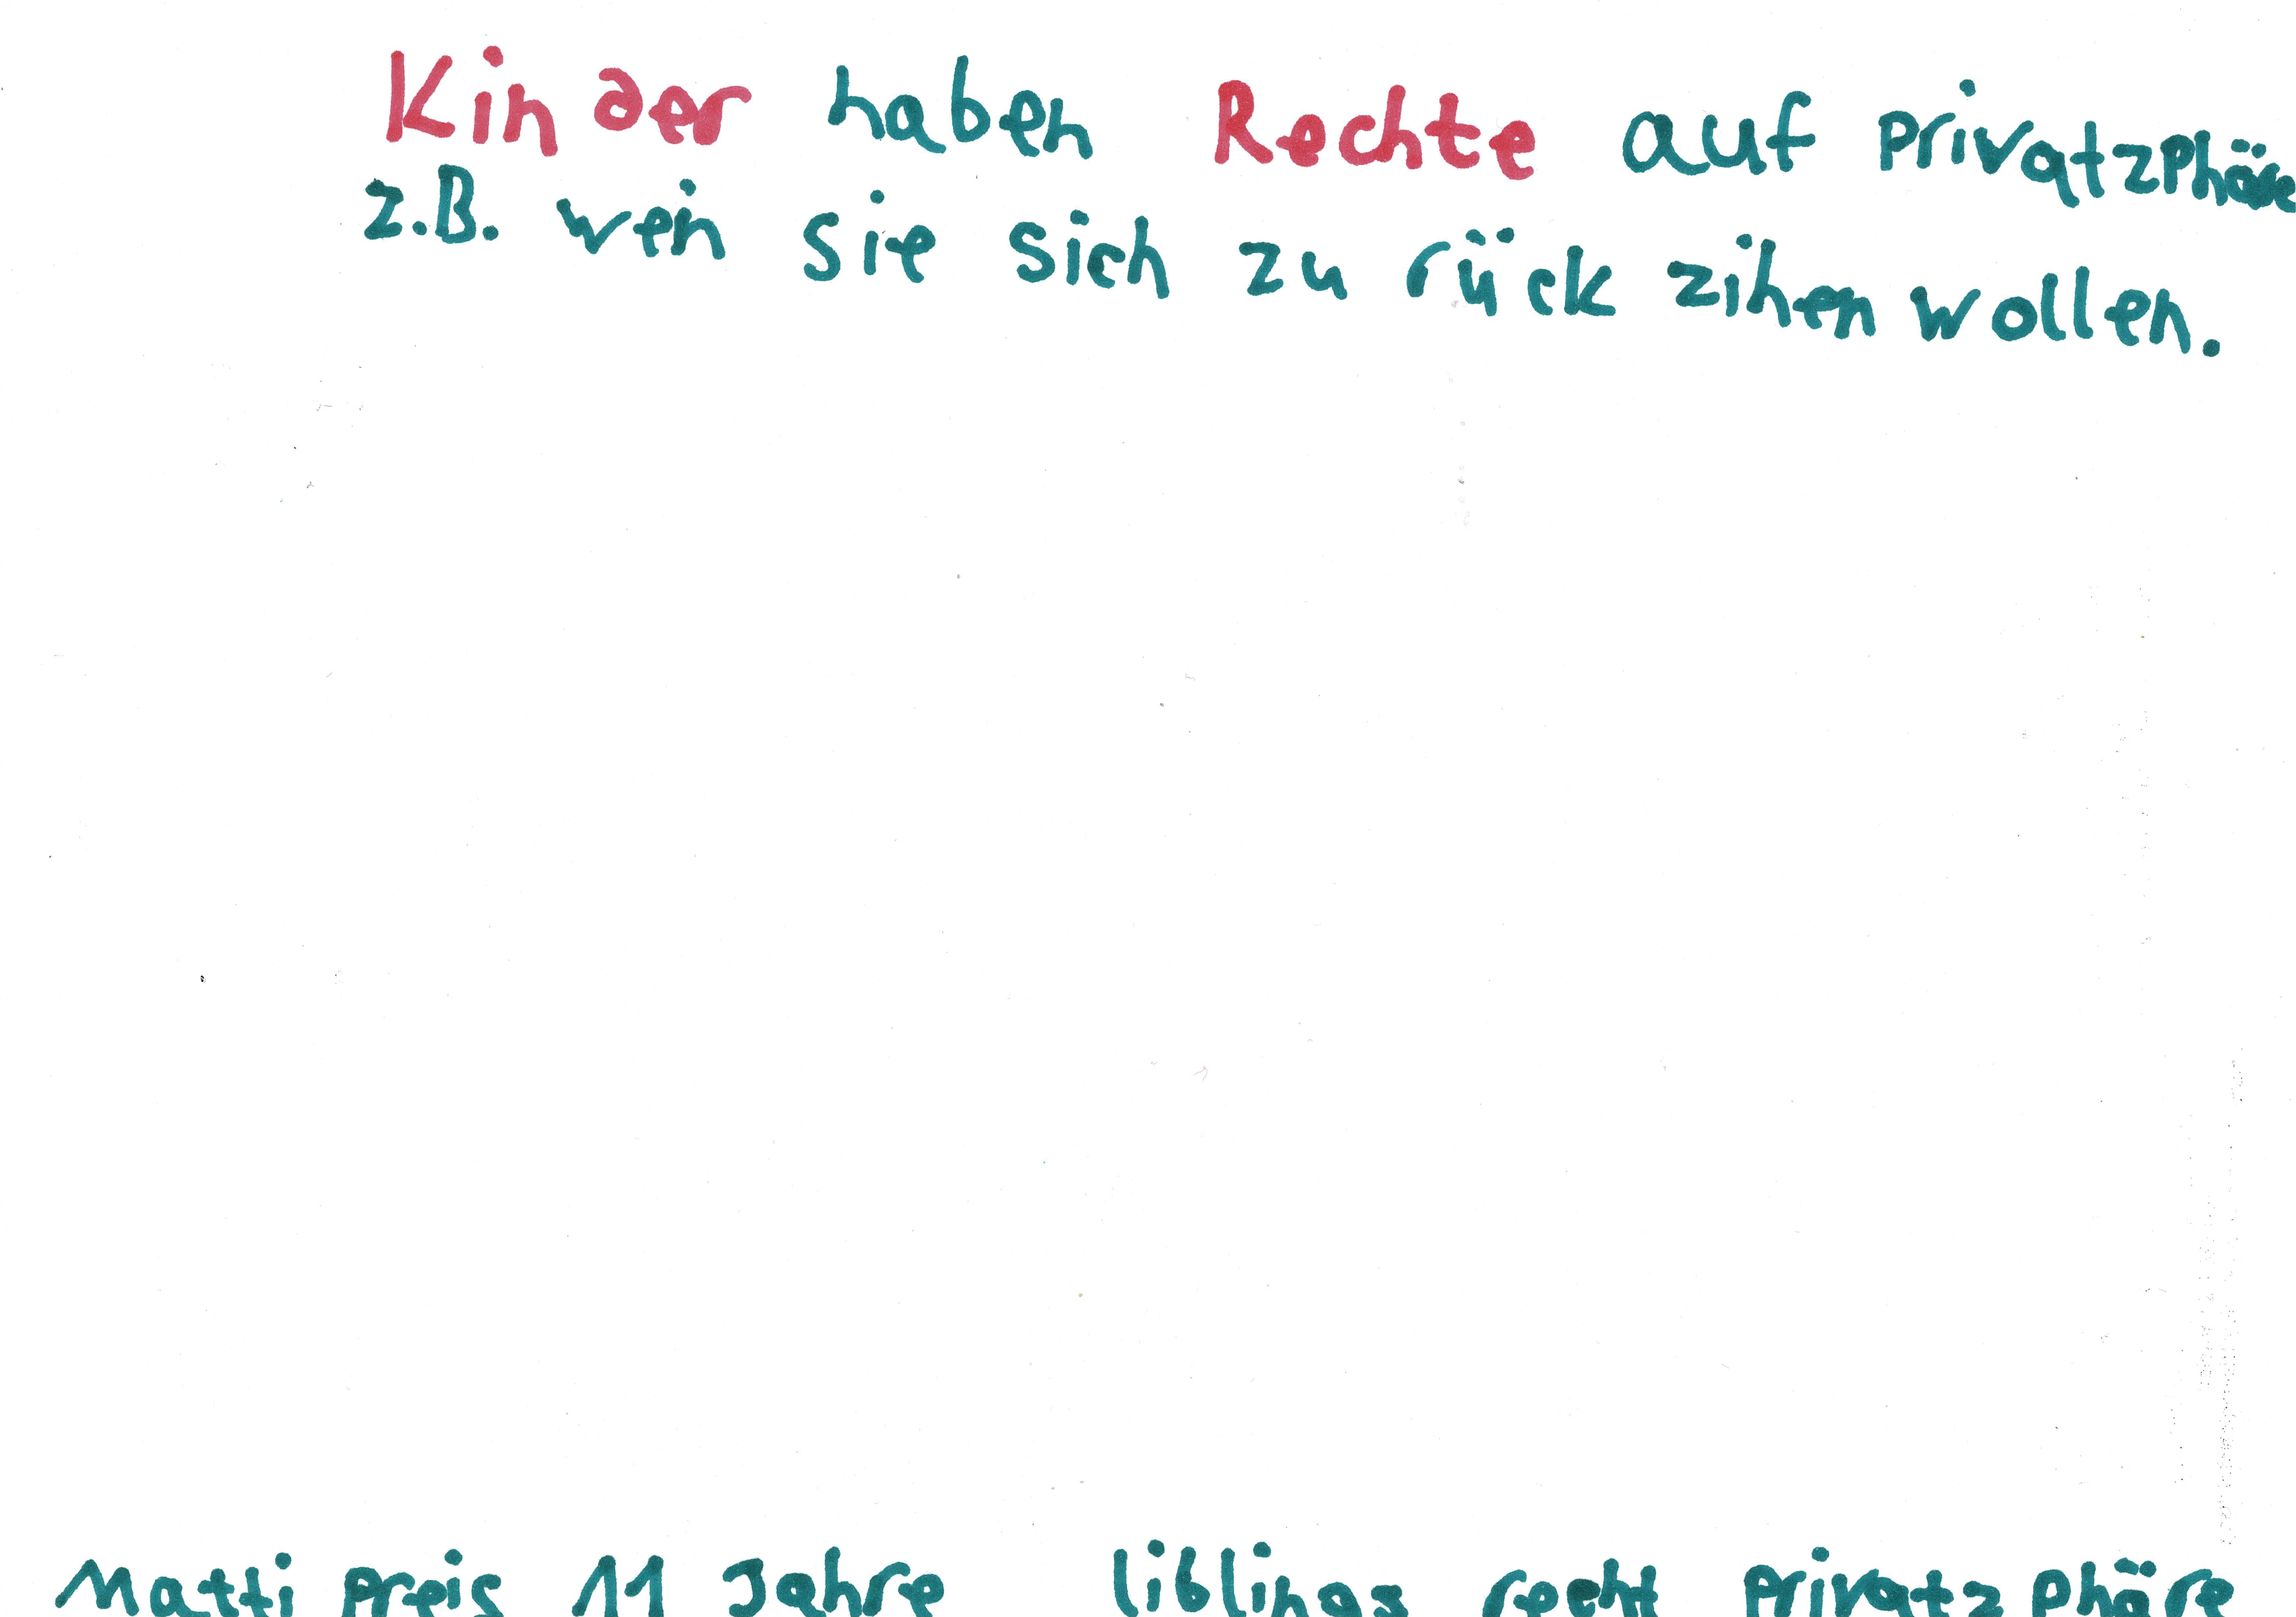 Kinder haben Rechte auf privatzphäre
z.B. wen sie sich zu rück zihen wollen.
Matti Preis 11 Jahre liblings recht privatz phäre